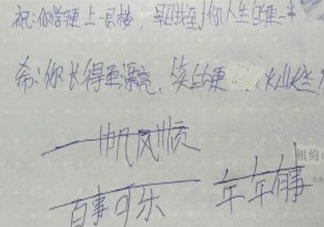 祝:你学更上一层楼,早日找到你人生的更一半
希:你长得更漂亮,笑的更
一帆风顺
百事可乐 年年有事